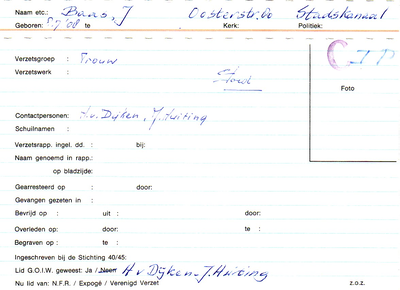 Naam etc.: Baas, J Oosterstr. 60 Stadskanaal
Geboren: 5-7-'08 te Kerk: Politiek:
CIP
Verzetsgroep : Trouw
Verzetswerk :
Foto
Contactpersonen: H. v. Dijken, J. Huizing
Schuilnamen :
Verzetsrapp. ingel. dd. : bij:
Naam genoemd in rapp.:
op bladzijde:
Gearresteerd op : door:
Gevangen gezeten in :
Bevrijd op : uit : door:
Overleden op: door: te :
Begraven op : te :
Ingeschreven bij de Stichting 40/45:
Lid G.O.I.W. geweest: Ja / Neen H v Dijken - J. Huizing
Nu lid van: N.F.R. / Expogé / Verenigd Verzet z.o.z.